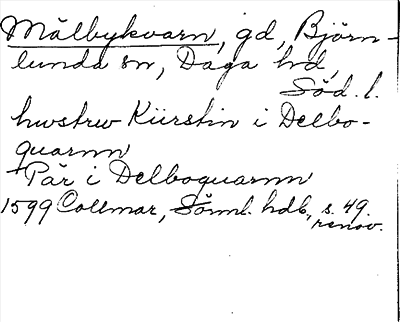 Målbykvarn, gd, Björn-
lunda sn, Daga hd,
Söd. l.
hwstrw Kiirstin i Delbo-
quarnn
Pär i Delboquarnn
1599 Collmar, Sörml. hdb., s. 49.
renov.